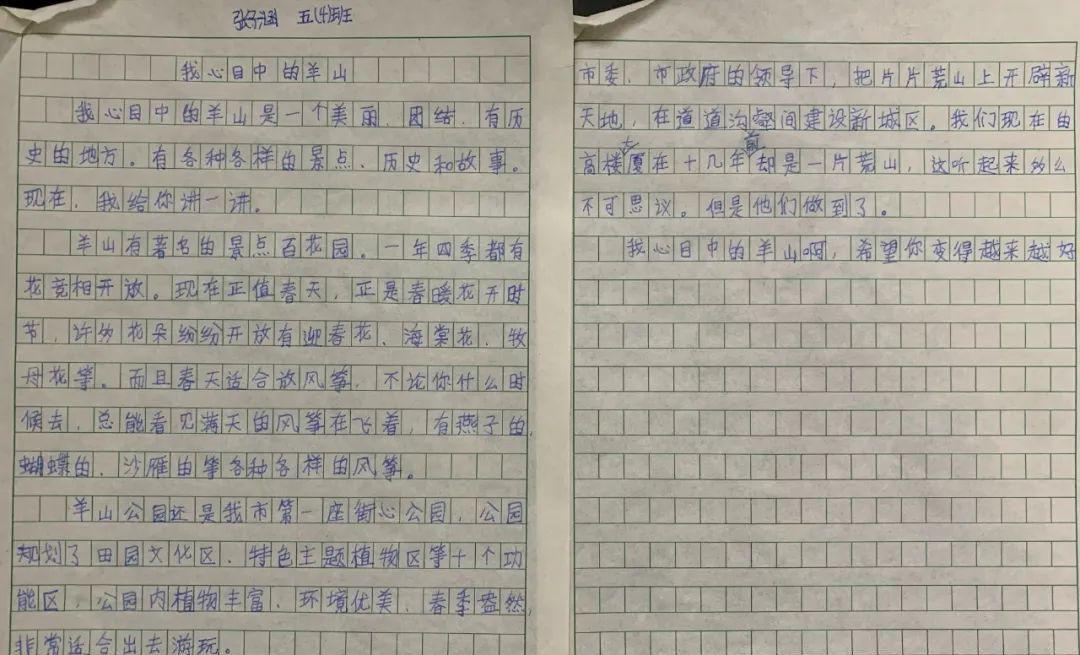 张子涵 五(4)班
我心目中的羊山
我心目中的羊山是一个美丽、团结、有历
史的地方。有各种各样的景点、历史和故事。
现在，我给你讲一讲。
羊山有著名的景点百花园。一年四季都有
花竞相开放。现在正值春天，正是春暖花开时
节，许多花朵纷纷开放有迎春花、海棠花、牧
丹花等。而且春天适合放风筝，不论你什么时
候去，总能看见满天的风筝在飞着，有燕子的、
蝴蝶的、沙雁的等各种各样的风筝。
羊山公园还是我市第一座街心公园，公园
规划了田园文化区、特色主题植物区等十个功
能区，公园内植物丰富、环境优美、春季盎然，
非常适合出去游玩。
市委、市政府的领导下，把片片荒山上开辟新
天地，在道道沟壑间建设新城区。我们现在的
高楼大厦在十几年前却是一片荒山，这听起来多么
不可思议。但是他们做到了。
我心目中的羊山啊，希望你变得越来越好